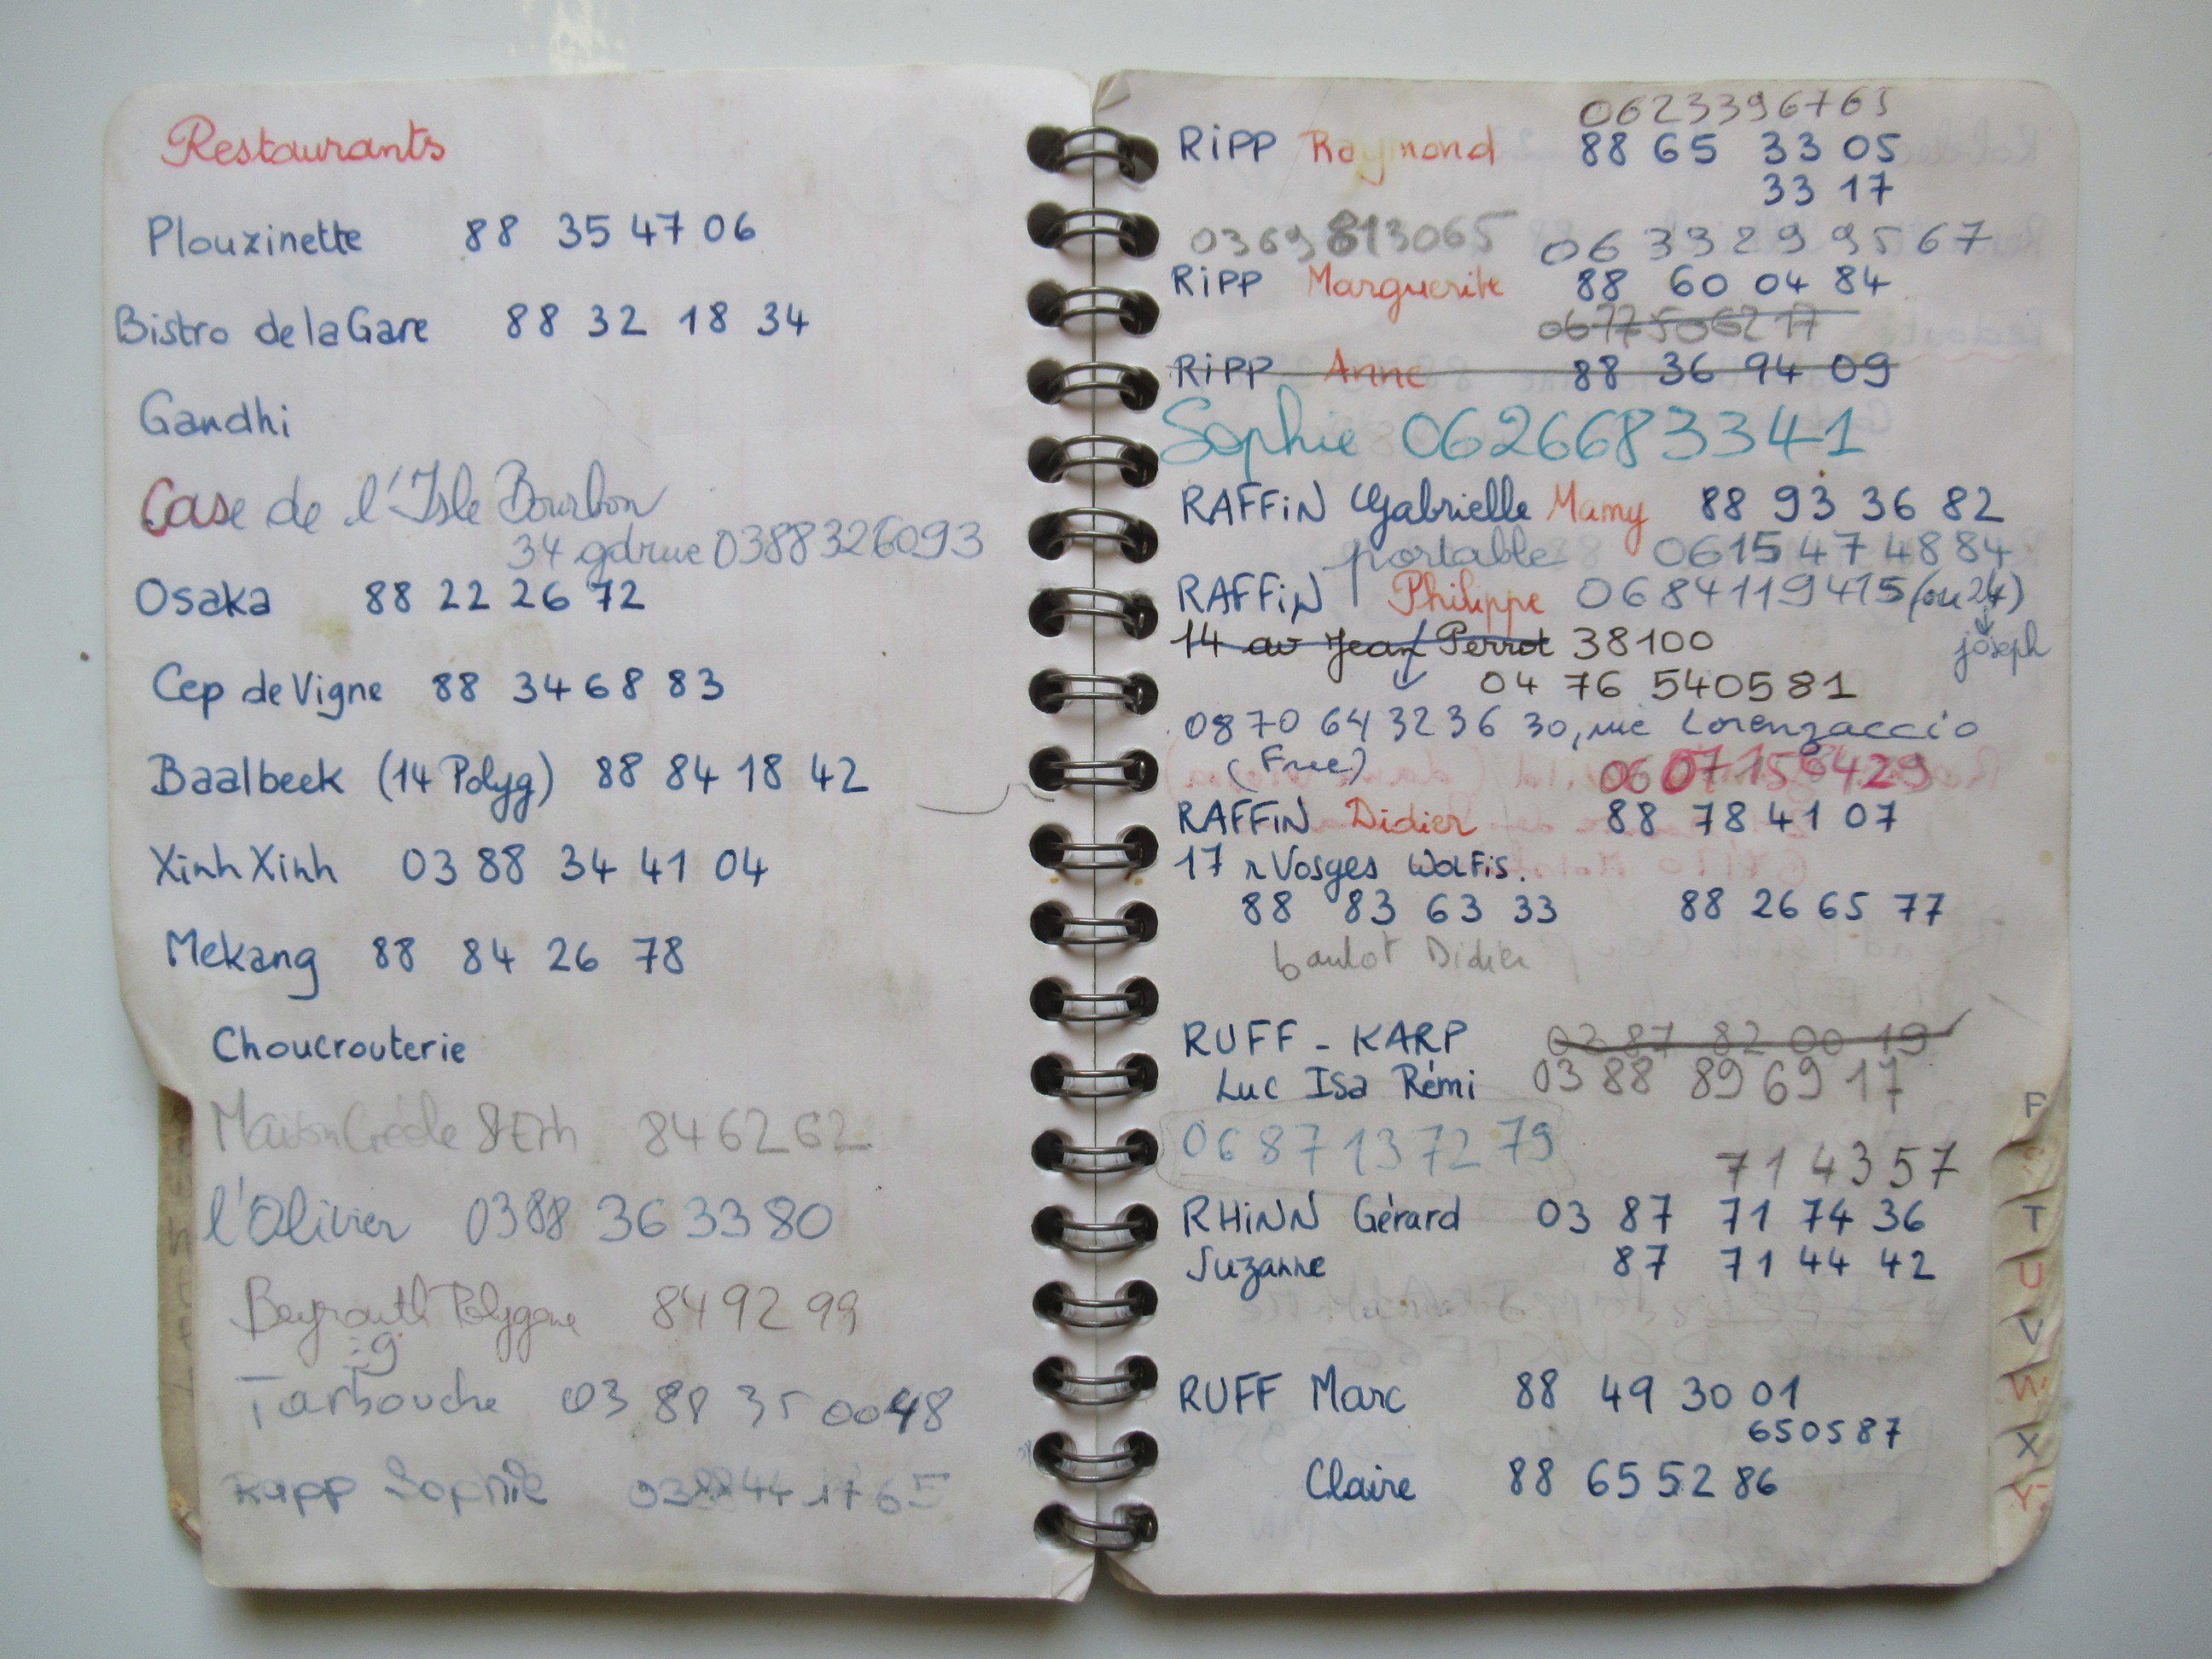 Restaurants
Plouzinette 88 35 47 06
Bistro de la Gare 88 32 18 34
Gandhi
Case de l'Isle Bourbon
34 gdrue 0388326093
Osaka 88 22 26 72
Cep de Vigne 88 34 68 83
Baalbeek (14 Polyg) 88 84 18 42
Xinh Xinh 03 88 34 41 04
Mekang 88 84 26 78
Choucrouterie
Maison Créole 846262
l'Olivier 0388 36 33 80
Beyrouth Polygone 84 92 99
Tarbouche 03 88 35 0048
Rapp Sophie 0388441765
0623396765
RiPP Raymond 88 65 33 05
33 17
0369813065 06 33 29 95 67
RiPP Marguerite 88 60 04 84
0677506217
RiPP Anne 88 36 94 09
Sophie 0626683341
RAFFiN Gabrielle Mamy 88 93 36 82
portable 0615 47 48 84
RAFFiN Philippe 0684119415 (ou 24)
joseph
14 av Jean Perrot 38100
04 76 540581
0870 64 32 36 30, rue Lorenzaccio
(Free)
0607156429
RAFFiN Didier 88 78 41 07
17 r Vosges Wolfis.
88 83 63 33 88 26 65 77
boulot Didier
RUFF - KARP 03 87 82 00 19
Luc Isa Rémi 03 88 89 69 17
06 87 13 72 79
71 43 57
RHiNN Gérard 03 87 71 74 36
Suzanne 87 71 44 42
RUFF Marc 88 49 30 01
650587
Claire 88 65 52 86
F
T
U
V
W
X
Y